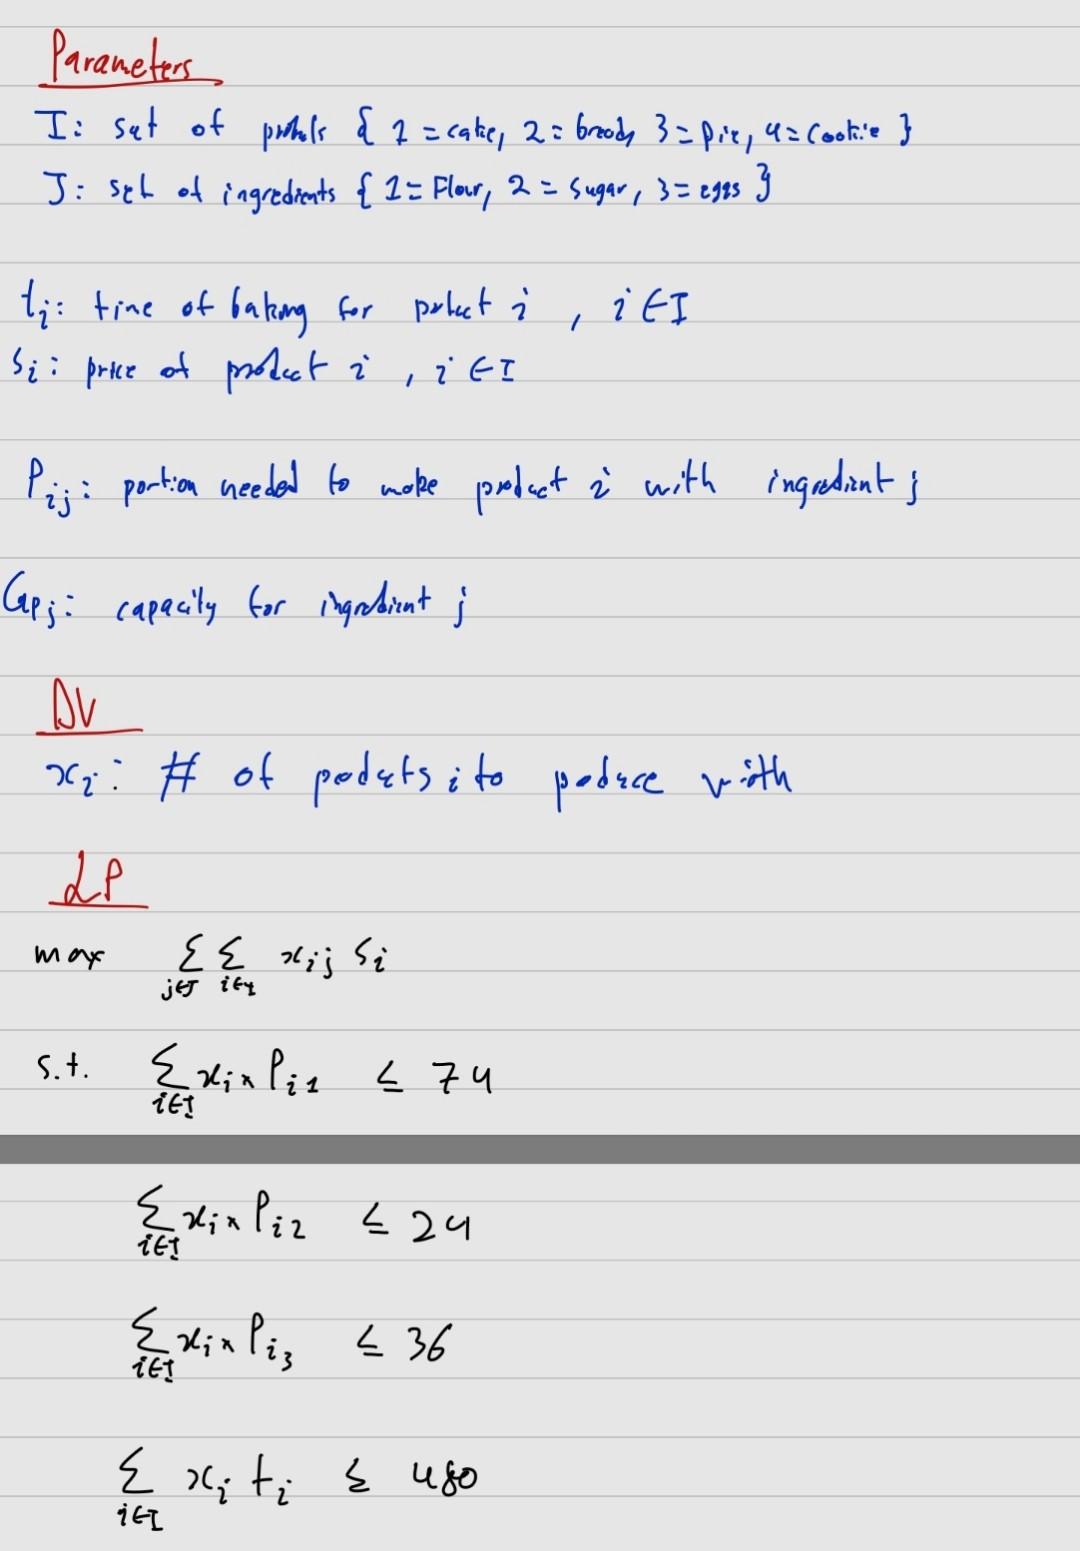 Parameters
I: set of prodcts { 1 = cake, 2 = bread, 3 = pie, 4 = Cookie }
J: set of ingredients { 1 = Flour, 2 = sugar, 3 = eggs }
ti: time of baking for product i , i ∈ I
Si: price of product i , i ∈ I
Pij: portion needed to make product i with ingredient j
Capj: capacity for ingredient j
DV
xi: # of prodcts i to produce with
LP
max Σ j∈J Σ i∈I xij Si
s.t. Σ i∈I xi × Pi1 ≤ 74
Σ i∈I xi × Pi2 ≤ 24
Σ i∈I xi × Pi3 ≤ 36
Σ i∈I xi ti ≤ 480